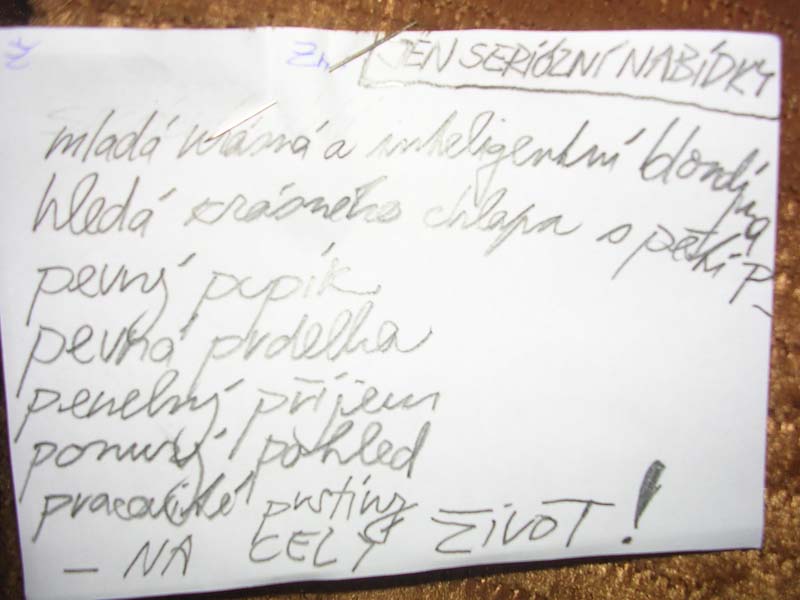 Ž Zn JEN SERIÓZNÍ NABÍDKY
mladá krásná a inteligentní blondýna
hledá krásného chlapa s pěti P_
pevný pupík
pevná prdelka
penelný příjem
ponurý pohled
pracovité prstíny
– NA CELÝ ŽIVOT!